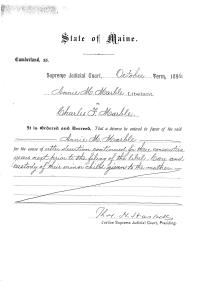 State of Maine.
Cumberland, ss.
Supreme Judicial Court, October Term, 189
Annie M. Marble Libelant
v.
Charles F. Marble.
It is Ordered and Decreed, That a divorce be entered in favor of the said
Annie M. Marble
for the cause of utter desertion continued for three consecutive
years next prior to the filing of the libel. Care and
custody of their minor child given to the mother
Justice Supreme Judicial Court, Presiding.